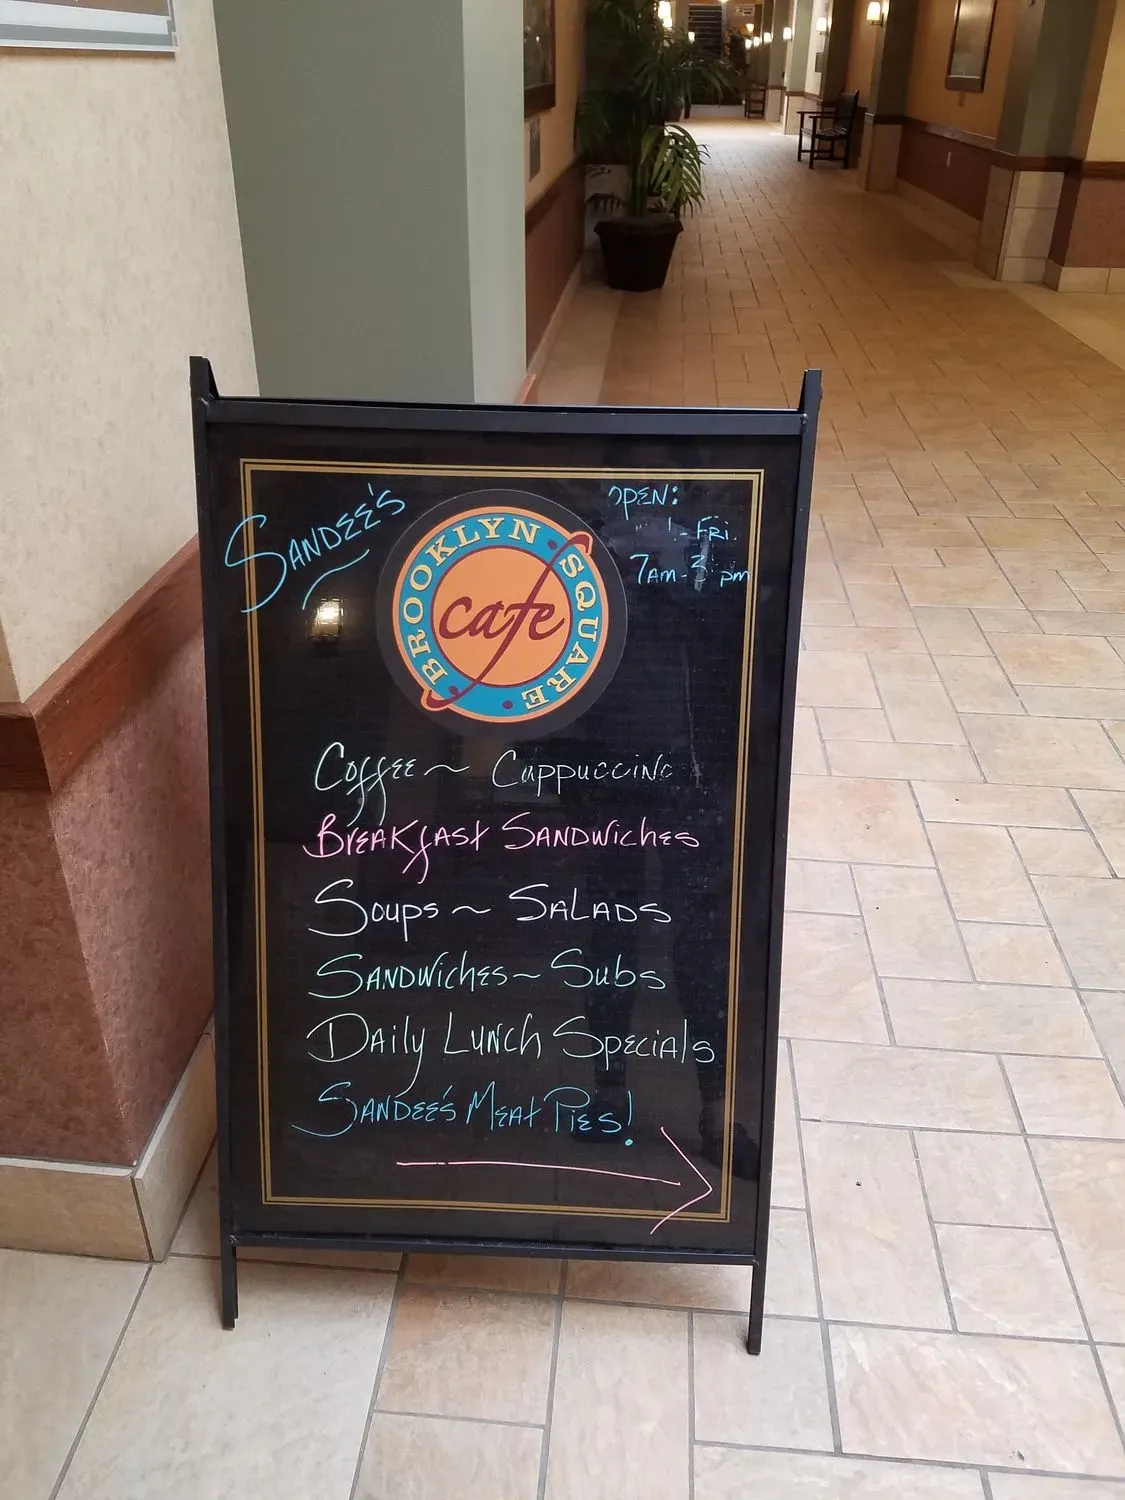 SANDEE'S
BROOKLYN SQUARE
cafe
OPEN:
- FRI.
7AM - 3 pm
COFFEE ~ CAPPUCCINO
BREAKFAST SANDWICHES
SOUPS ~ SALADS
SANDWICHES ~ SUBS
DAILY LUNCH SPECIALS
SANDEE'S MEAT PIES!